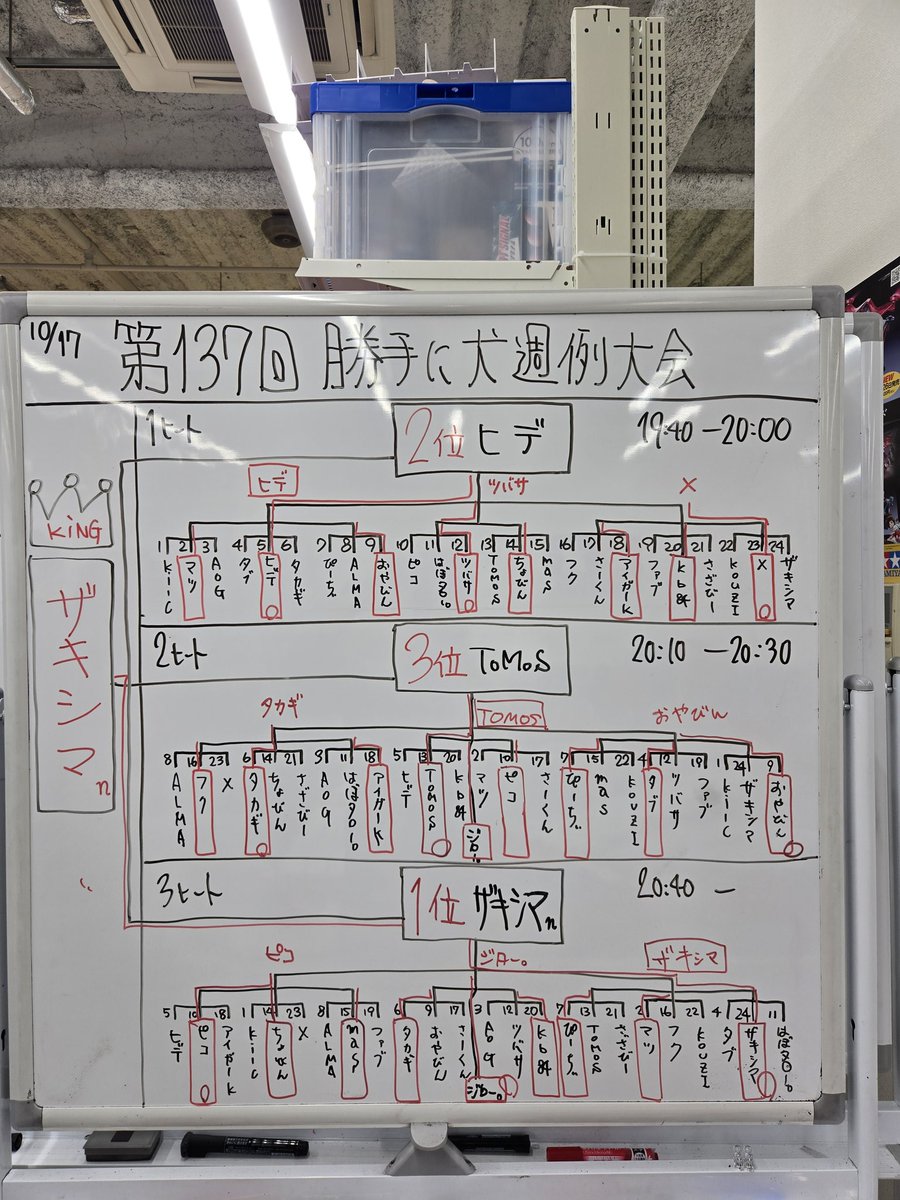 10/17 第137回 勝手に犬週例大会
1ヒート 2位 ヒデ 19:40-20:00
KiNG
ザキシマn
ヒデ ツバサ X
1 2 3 4 5 6 7 8 9 10 11 12 13 14 15 16 17 18 19 20 21 22 23 24
kiiC
マツ
AOG
タブ
ヒデ
タカギ
ぴーちゃん
ALMA
おやびん
ピコ
ツバサ
TOMOS
ちょびん
mas
フク
さーくん
アイガーK
ファブ
kb84
さざびー
KOUZI
X
ザキシマ
2ヒート 3位 ToMoS 20:10-20:30
タカギ TOMOS おやびん
8 16 23 6 14 21 3 11 18 5 13 20 2 10 17 7 15 22 4 12 19 1 24 9
ALMA
フク
X
タカギ
ちょびん
さざびー
AOG
アイガーK
ヒデ
TOMOS
kb84
マツ
ジロー。
ピコ
さーくん
mas
KOUZI
タブ
ツバサ
ファブ
kiiC
ザキシマ
おやびん
3ヒート 1位 ザキシマn 20:40-
ピコ ジロー。 ザキシマ
5 10 18 1 14 23 8 15 19 6 9 17 3 12 20 7 13 21 2 16 22 4 24 11
ヒデ
ピコ
アイガーK
kiiC
ちょびん
X
ALMA
mas
ファブ
タカギ
おやびん
さーくん
AOG
ジロー。
ツバサ
kb84
TOMOS
さざびー
マツ
フク
KOUZI
タブ
ザキシマ